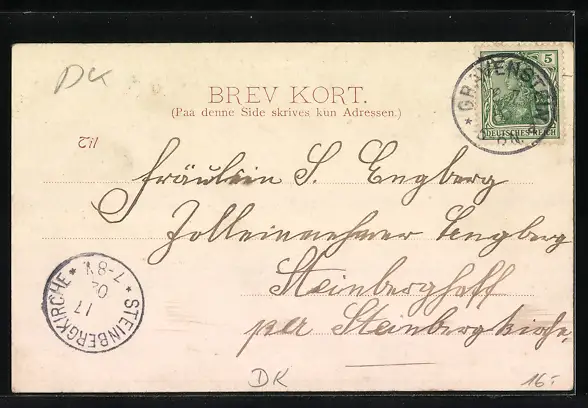 DK
BREV KORT.
(Paa denne Side skrives kun Adressen.)
5
DEUTSCHES REICH
* GRAVENSTEIN *
Fräulein S. Engberg
Zolleinnehmer Engberg
Steinberghaff
per Steinbergkirche
* STEINBERGKIRCHE *
7-8V.
17
02
DK
16.-